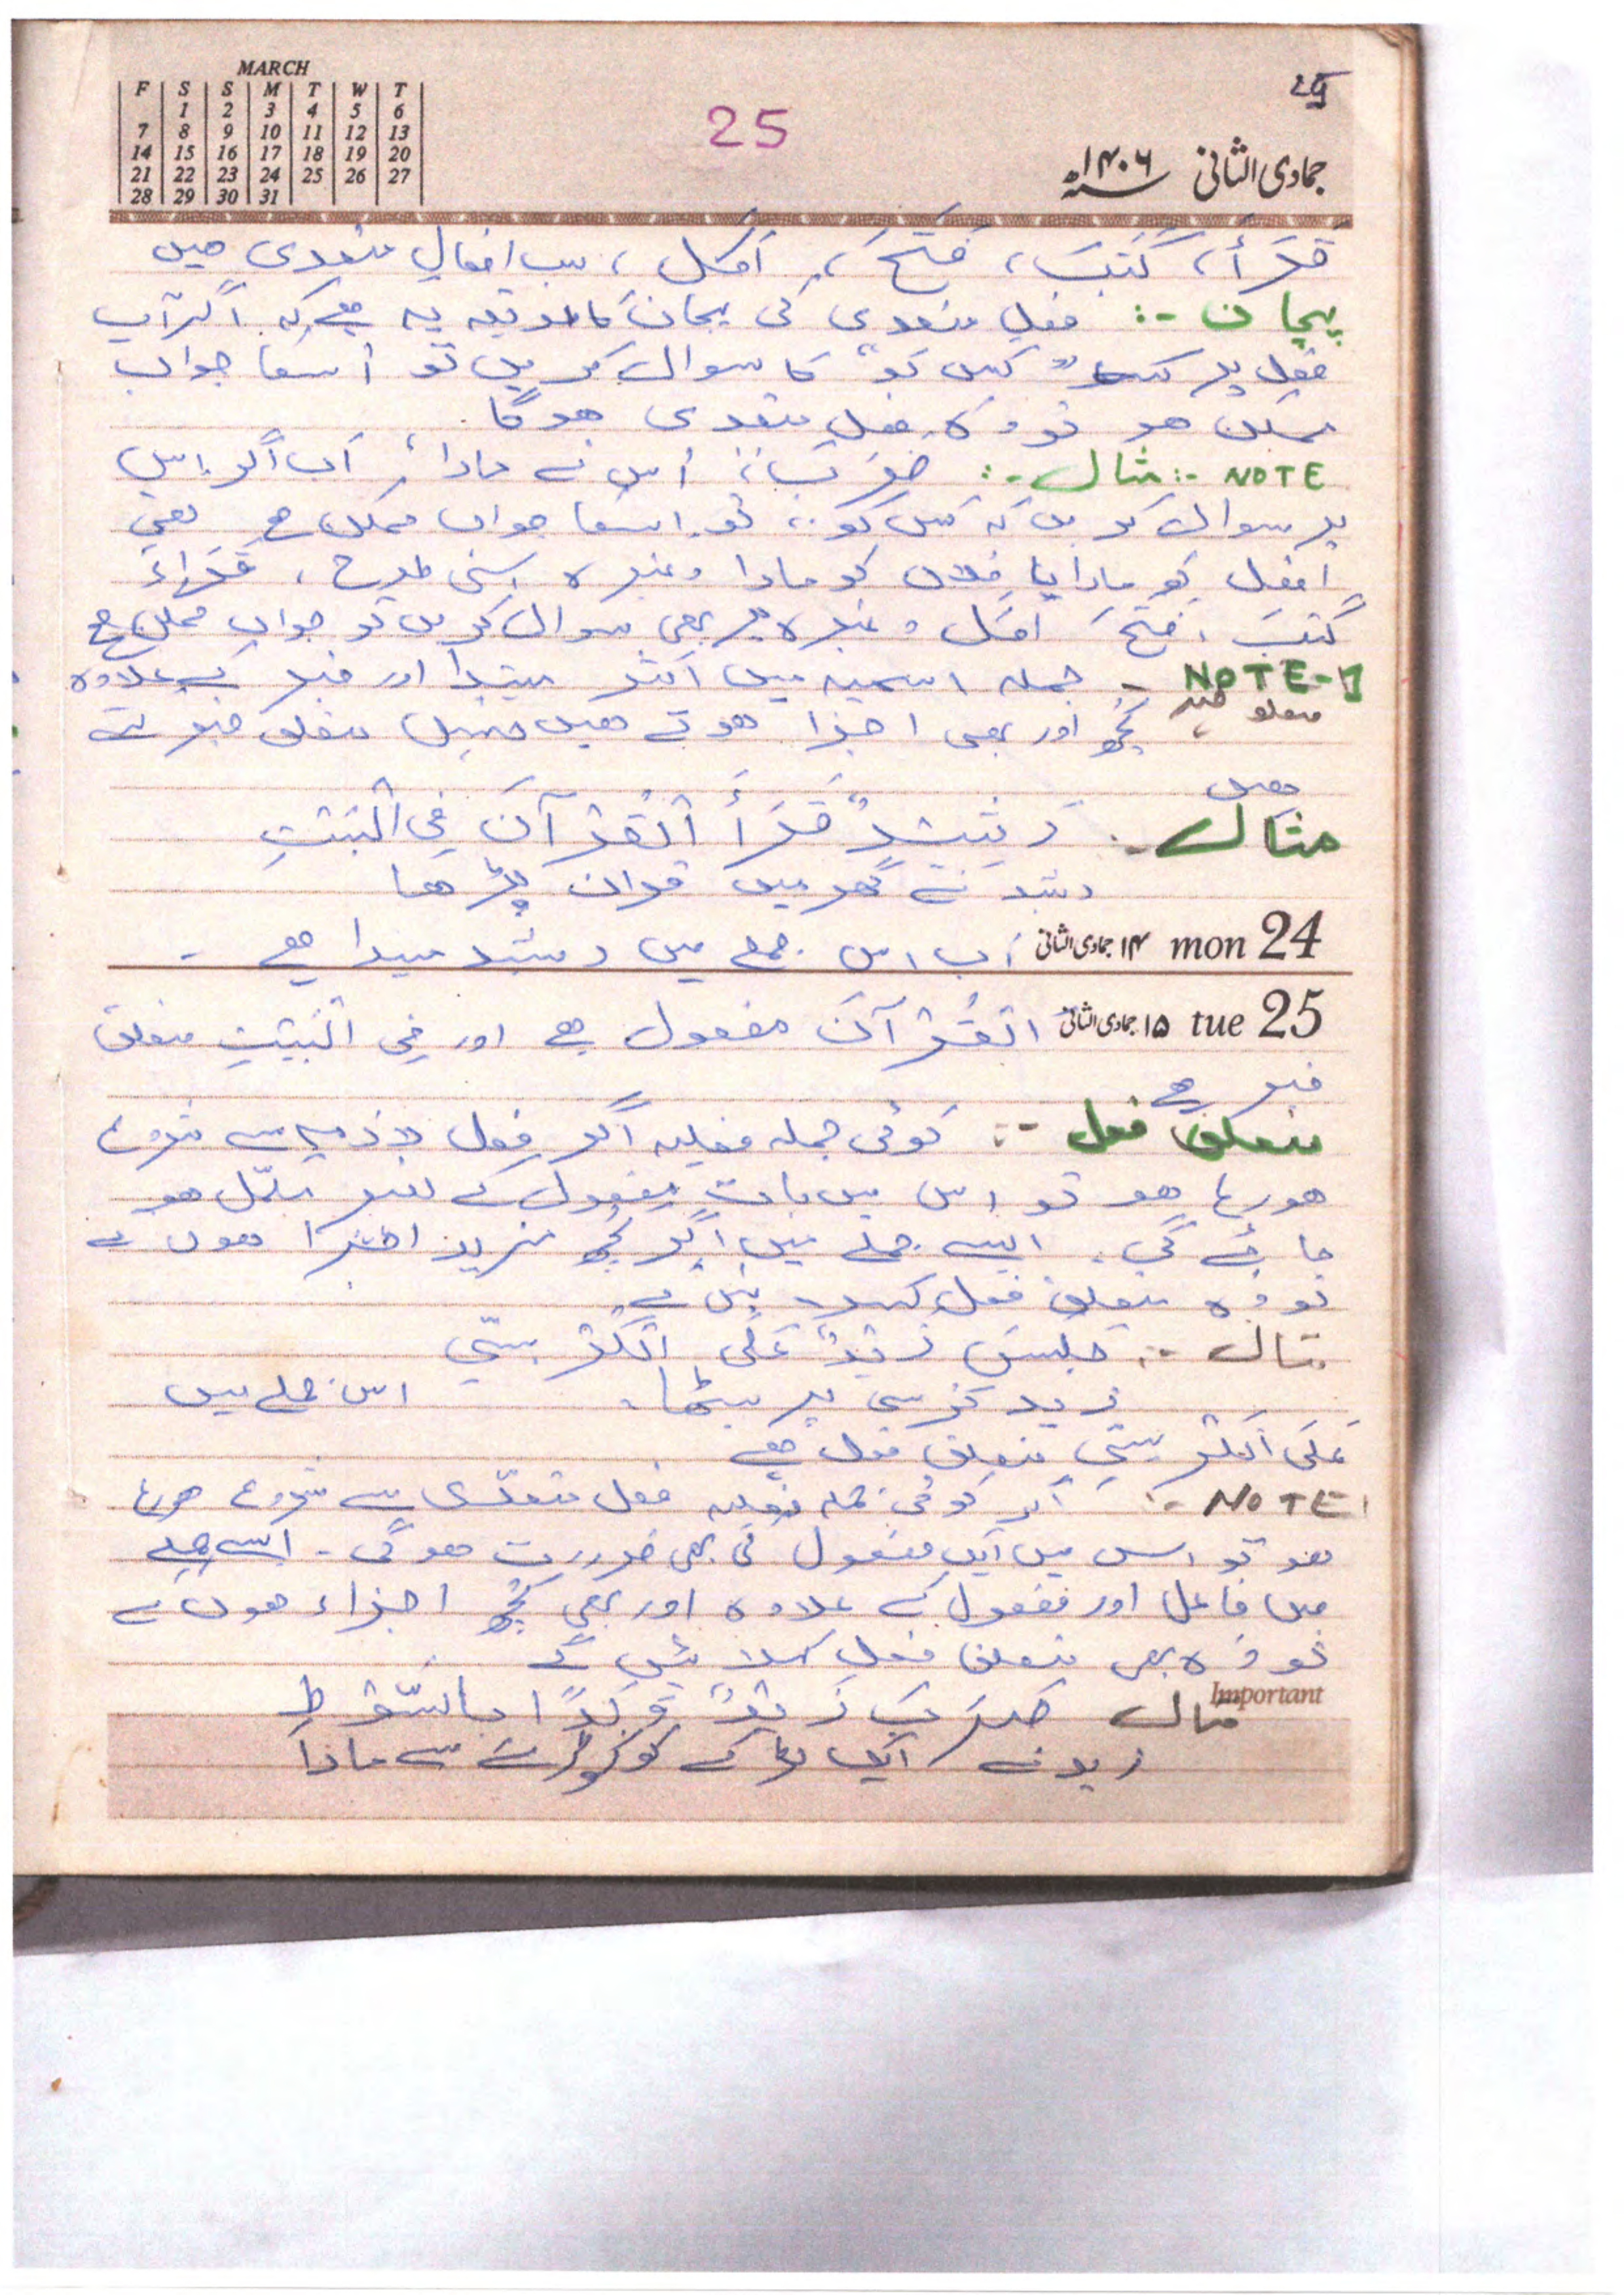 MARCH
F S S M T W T
1 2 3 4 5 6
7 8 9 10 11 12 13
14 15 16 17 18 19 20
21 22 23 24 25 26 27
28 29 30 31
25
جمادی الثانی ۱۴۰۶ھ
قَرَأَ، کَتَبَ، فَتَحَ، اَکَل، سب افعال متعدی ھیں
پہچان -: فعل متعدی کی پہچان کا طریقہ یہ ھے کہ اگر آپ
فعل پر "کس کو" کا سوال کریں تو اُسکا جواب
ممکن ھو تو وہ فعل متعدی ھوگا۔
NOTE -: مثال -: ضَرَبَ اُس نے مارا، اَب اگر اس
پر سوال کریں کہ کس کو، تو اسکا جواب ممکن ھے یعنی
افضل کو مارا یا فلاں کو مارا وغیرہ اسی طرح، قَرَاءَ
کَتَبَ، فَتَحَ اکل وغیرہ پر بھی سوال کریں تو جواب ممکن ھے
NOTE-1 - جملہ اسمیہ میں اکثر مبتدا اور خبر کے علاوہ
متعلق خبر کچھ اور بھی اجزا ھوتے ھیں جنہیں متعلق خبر کہتے
ھیں
مثال - رَشِیْدٌ قَرَأَ الْقُرْآنَ فِی الْبَیْتِ
رشید نے گھر میں قران پڑھا
mon 24 ۱۴ جمادی الثانی اب اس جملے میں رشید مبتدا ھے -
tue 25 ۱۵ جمادی الثانی القُرْآنَ مفعول ھے اور فِی الْبَیْتِ متعلق
خبر ھے
متعلق فعل -: کوئی جملہ فعلیہ اگر فعل لازم سے شروع
ھو رہا ھو تو اس میں بات مفعول کے بغیر مکمّل ھو
جائے گی۔ ایسے جملے میں اگر کچھ مزید اجزا ھوں گے
تو وہ متعلق فعل کہلائیں گے۔
مثال -: جَلَسَ زَیْدٌ عَلَی الْکُرْسِیِّ
زید کرسی پر بیٹھا۔ اس جملے میں
عَلَی الْکُرْسِیِّ متعلق فعل ھے
NOTE -: اگر کوئی جملہ فعلیہ فعل متعدّی سے شروع ھورہا
ھو تو اس میں ایک مفعول کی بھی ضرورت ھوگی - ایسے جملے
میں فاعل اور مفعول کے علاوہ اور بھی کچھ اجزاء ھوں گے
تو وہ بھی متعلق فعل کہلائیں گے
Important
مثال ضَرَبَ زَیْدٌ وَلَدًا بِالسَّوْطِ
زید نے ایک لڑکے کو کوڑے سے مارا